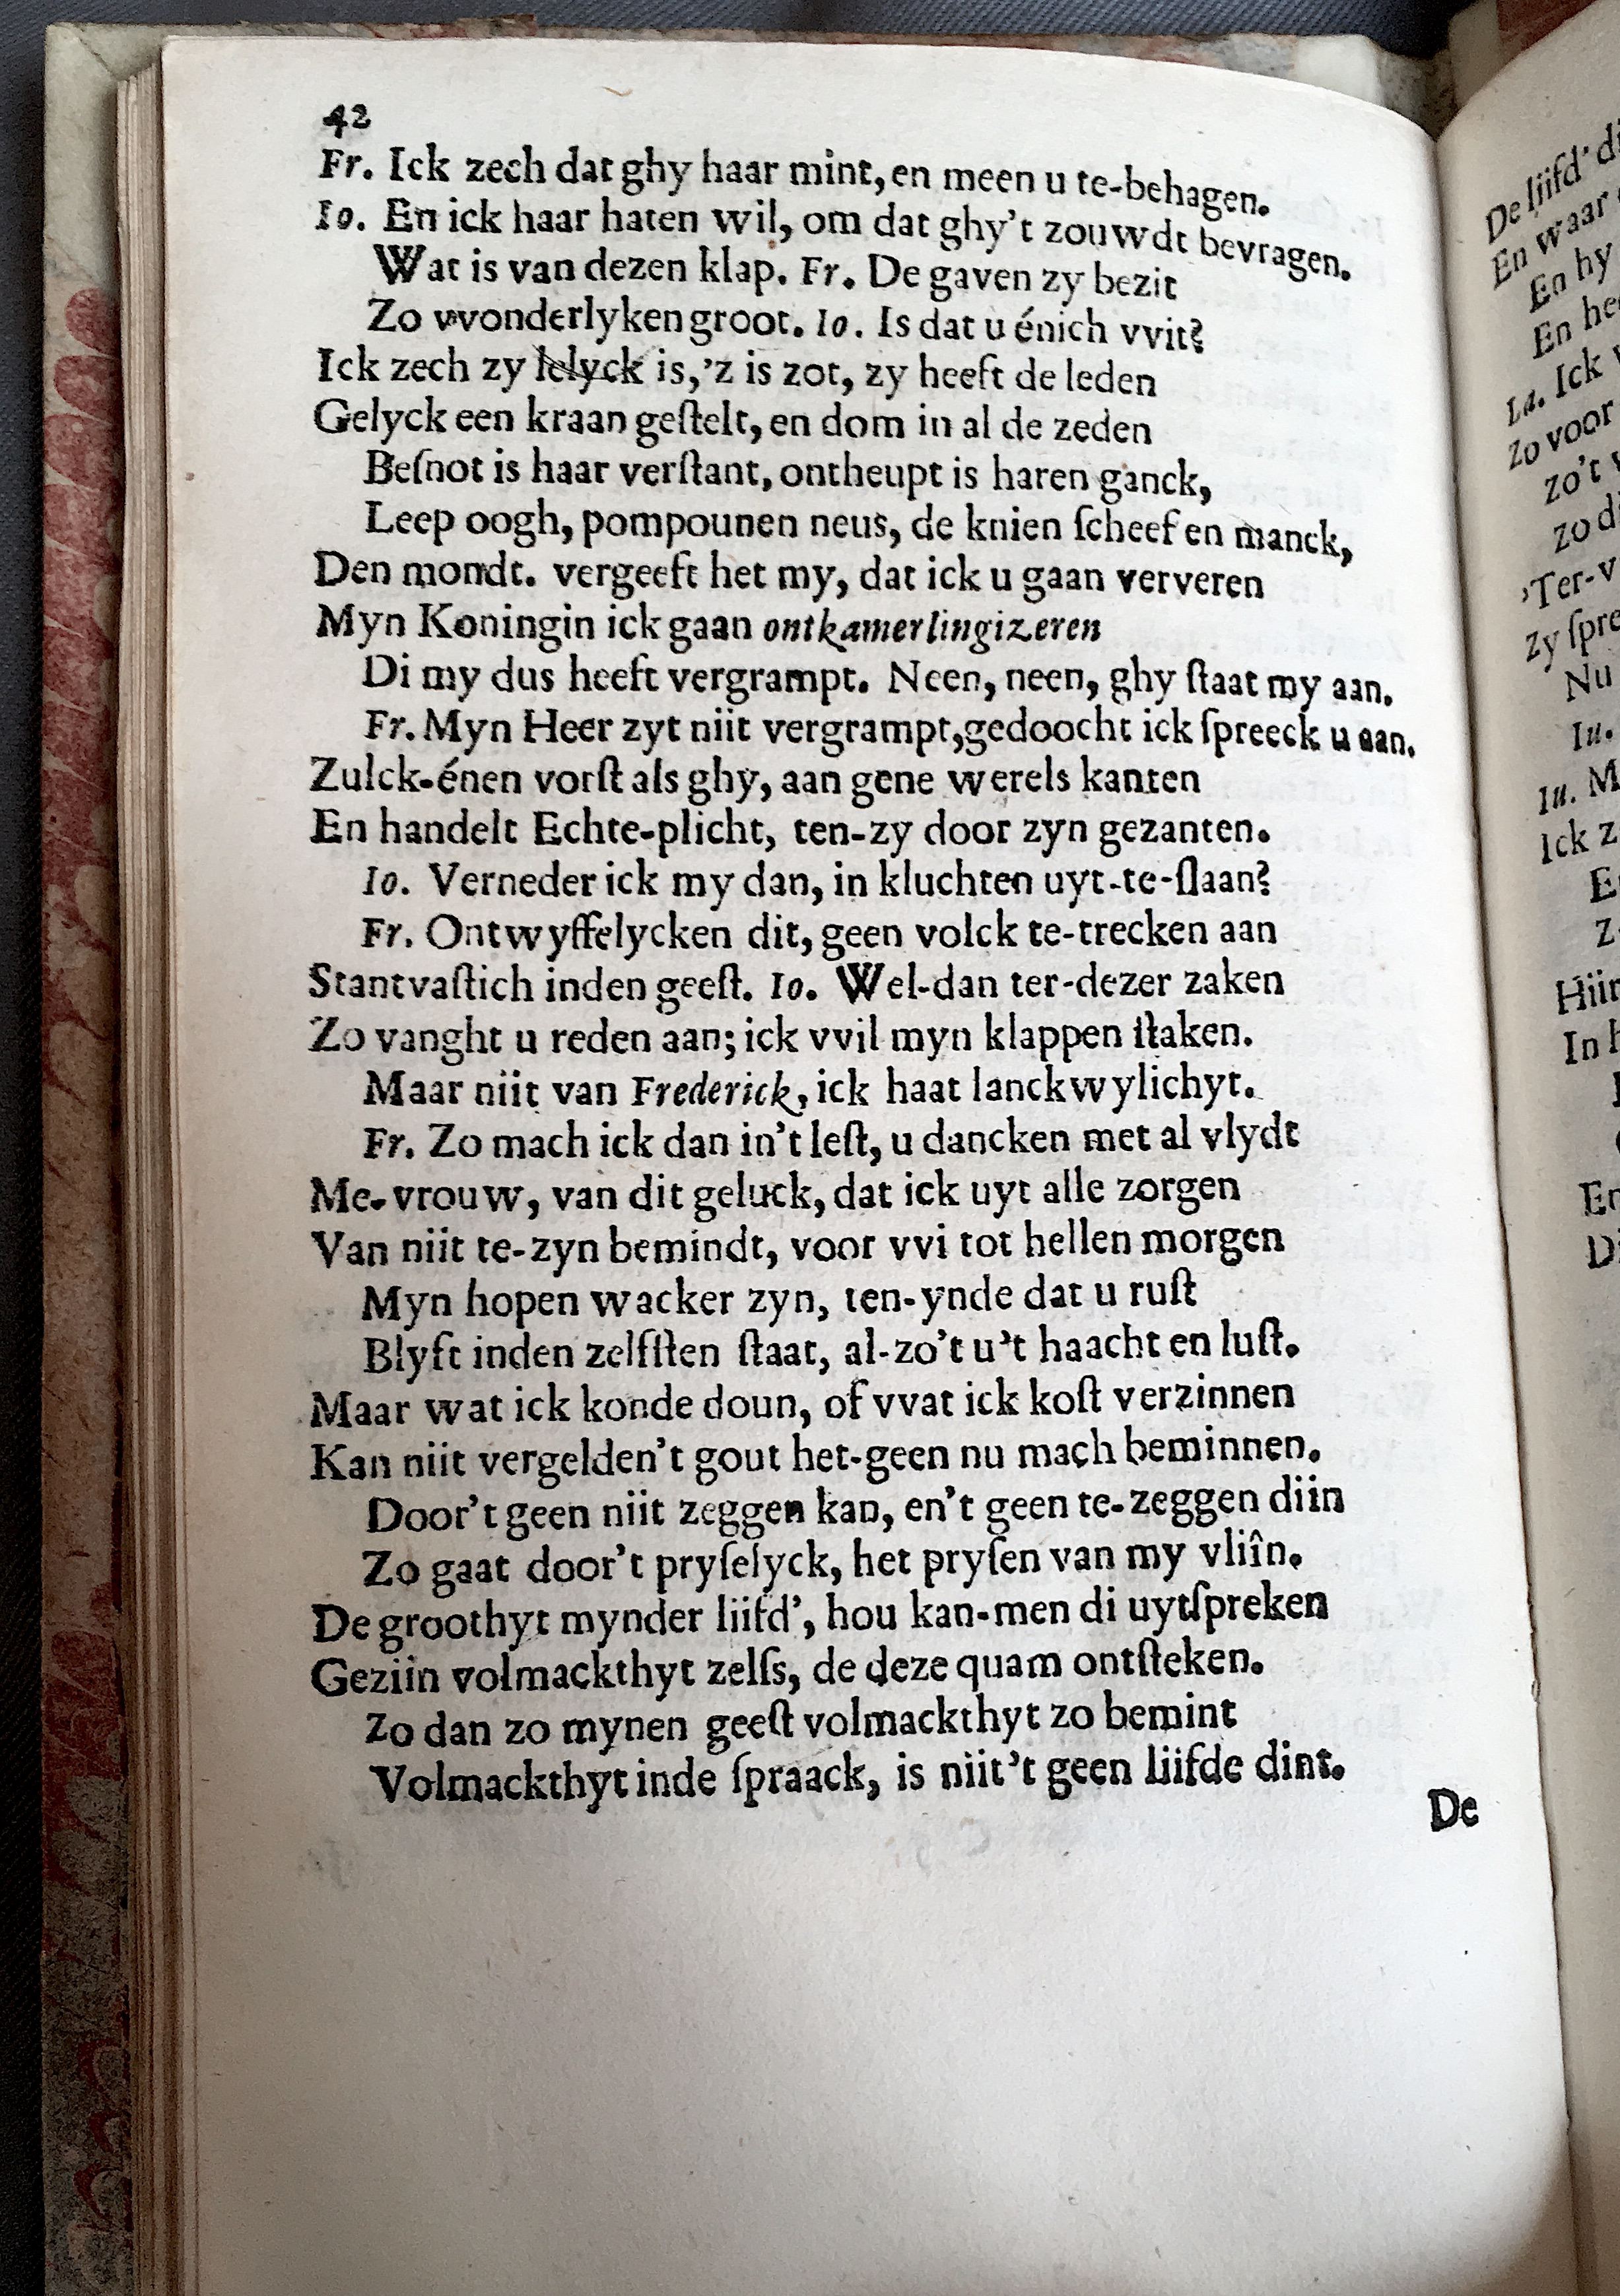 42
Fr. Ick zech dat ghy haar mint, en meen u te-behagen.
Io. En ick haar haten wil, om dat ghy't zouwdt bevragen.
Wat is van dezen klap. Fr. De gaven zy bezit
Zo wonderlyken groot. Io. Is dat u énich vvit?
Ick zech zy lelyck is, 'z is zot, zy heeft de leden
Gelyck een kraan geſtelt, en dom in al de zeden
Beſnot is haar verſtant, ontheupt is haren ganck,
Leep oogh, pompounen neus, de knien ſcheef en manck,
Den mondt. vergeeft het my, dat ick u gaan ververen
Myn Koningin ick gaan ontkamerlingizeren
Di my dus heeft vergrampt. Neen, neen, ghy ſtaat my aan.
Fr. Myn Heer zyt niit vergrampt, gedoocht ick ſpreeck u aan.
Zulck-énen vorſt als ghy, aan gene werels kanten
En handelt Echte-plicht, ten-zy door zyn gezanten.
Io. Verneder ick my dan, in kluchten uyt-te-ſlaan?
Fr. Ontwyffelycken dit, geen volck te-trecken aan
Stantvaſtich inden geeſt. Io. Wel-dan ter-dezer zaken
Zo vanght u reden aan; ick vvil myn klappen ſtaken.
Maar niit van Frederick, ick haat lanckwylichyt.
Fr. Zo mach ick dan in't leſt, u dancken met al vlydt
Me-vrouw, van dit geluck, dat ick uyt alle zorgen
Van niit te-zyn bemindt, voor vvi tot hellen morgen
Myn hopen wacker zyn, ten-ynde dat u ruſt
Blyft inden zelfſten ſtaat, al-zo't u't haacht en luſt.
Maar wat ick konde doun, of vvat ick koſt verzinnen
Kan niit vergelden't gout het-geen nu mach beminnen.
Door't geen niit zeggen kan, en't geen te-zeggen diin
Zo gaat door't pryſelyck, het pryſen van my vliîn.
De groothyt mynder liifd', hou kan-men di uytſpreken
Geziin volmackthyt zelfs, de deze quam ontſteken.
Zo dan zo mynen geeſt volmackthyt zo bemint
Volmackthyt inde ſpraack, is niit't geen liifde dint.
De